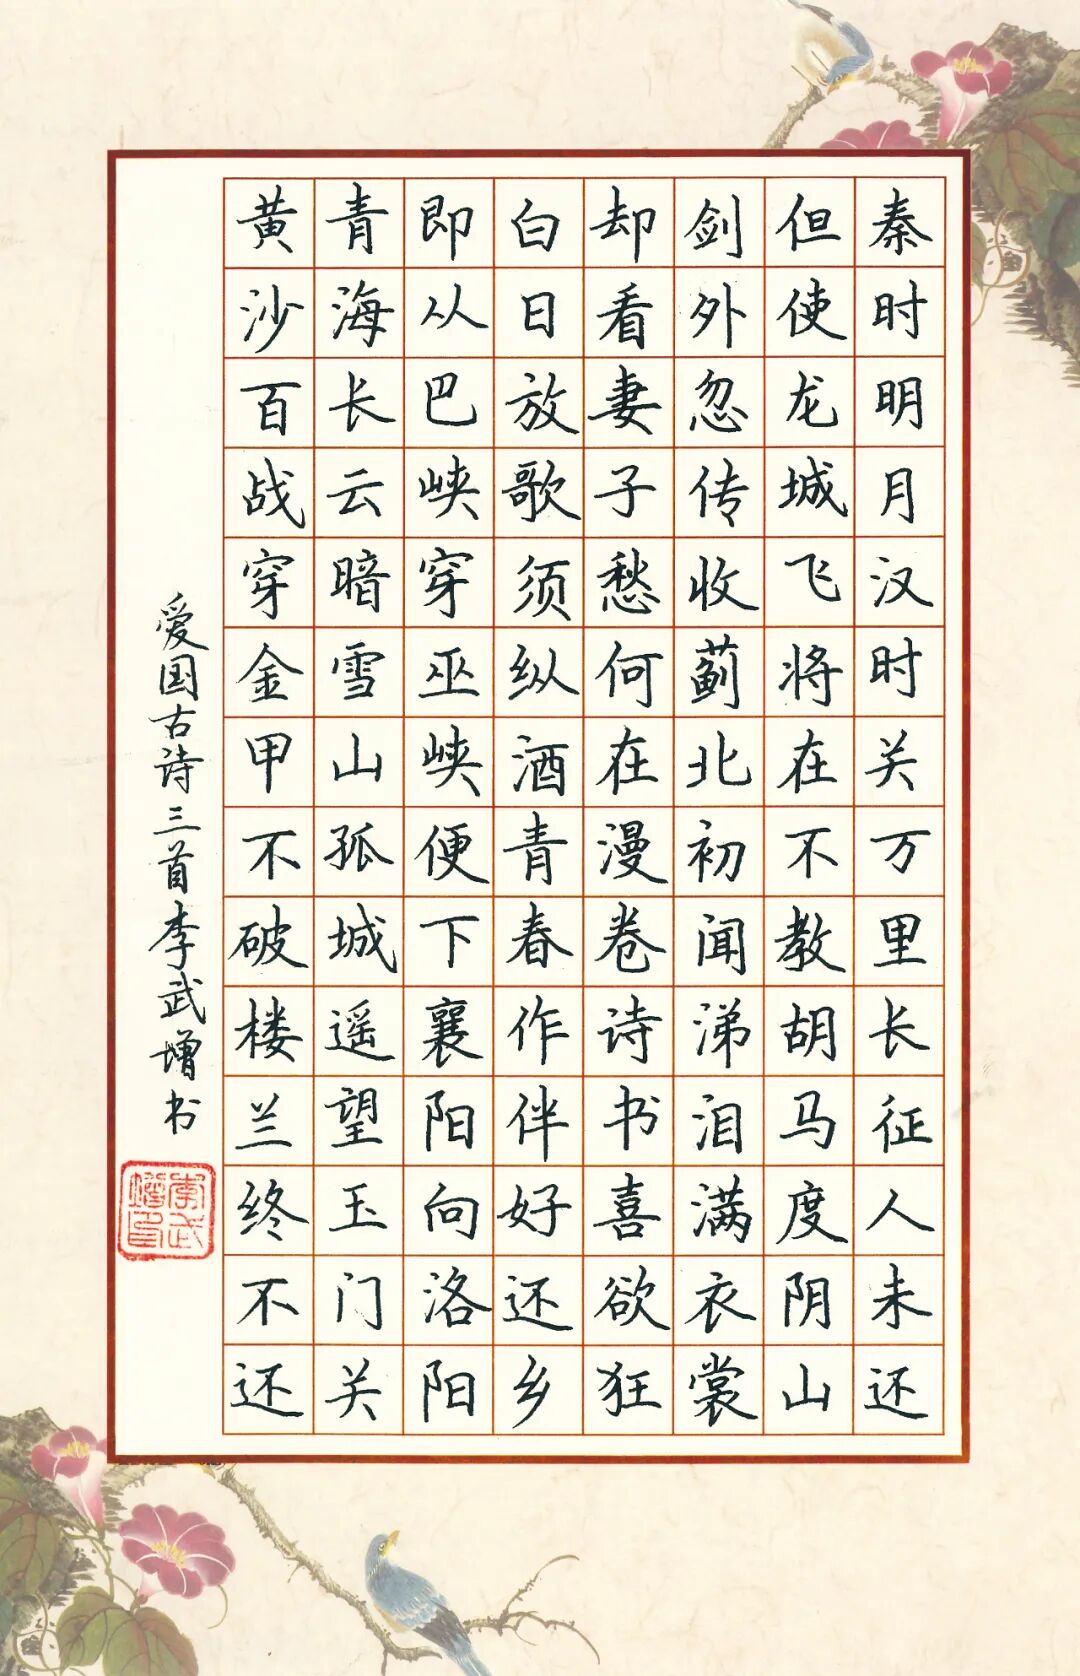 秦时明月汉时关万里长征人未还
但使龙城飞将在不教胡马度阴山
剑外忽传收蓟北初闻涕泪满衣裳
却看妻子愁何在漫卷诗书喜欲狂
白日放歌须纵酒青春作伴好还乡
即从巴峡穿巫峡便下襄阳向洛阳
青海长云暗雪山孤城遥望玉门关
黄沙百战穿金甲不破楼兰终不还
爱国古诗三首李武增书
李武增印